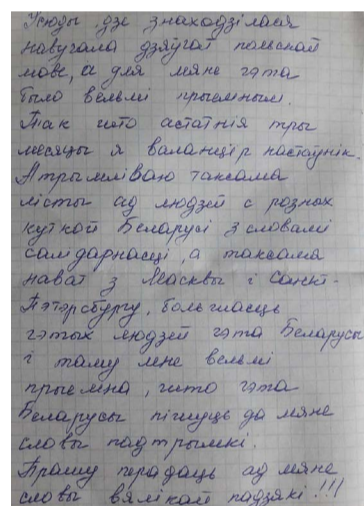 Усюды дзе знаходзілася
навучала дзяўчат польскай
мове, а для мяне гэта
было вельмі прыемным.
Так што астатнія тры
месяцы я валанцёр настаўнік.
Атрымліваю таксама
лісты ад людзей с розных
куткой Беларусі з словамі
самдарнасці, а таксама
нават з Масквы і Санкт-
Пэтэрсбургу, большасць
гэтых людзей гэта Беларусы
і таму мне вельмі
прыемна, што гэта
Беларусы пішуць да мяне
словы падтрымкі.
Прашу перадаць ад мяне
словы вялікай падзякі!!!